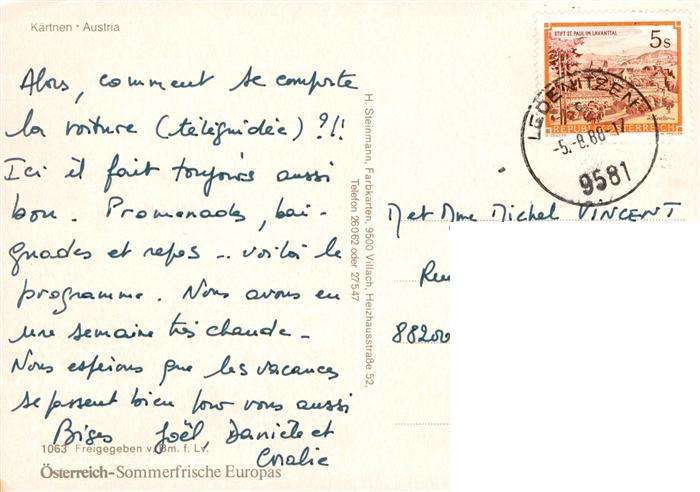 Kärtnen · Austria
Alors, comment se comporte
la voiture (téléguidée) ?!!
Ici il fait toujours aussi
bon. Promenades, bai-
gnades et repos... voilà le
programme. Nous avons eu
une semaine très chaude.
Nous espérons que les vacances
se passent bien pour vous aussi
Bises Joël, Danièle et
Coralie
1063 Freigegeben v. Bm. f. Lv.
Österreich-Sommerfrische Europas
H. Steinmann, Farbkarten, 9500 Villach, Heizhausstraße 52,
Telefon 26062 oder 27547
STIFT ST. PAUL IM LAVANTTAL
5 S
REPUBLIK ÖSTERREICH
LEDENITZEN
-5.-8.88-17
9581
M et Mme Michel VINCENT
88200